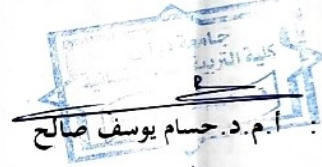 جامعة
كلية التربية
أ.م.د. حسام يوسف صالح